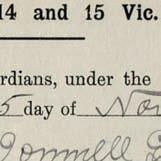 14 and 15 Vic.
rdians, under the
5 day of Nov
onnell